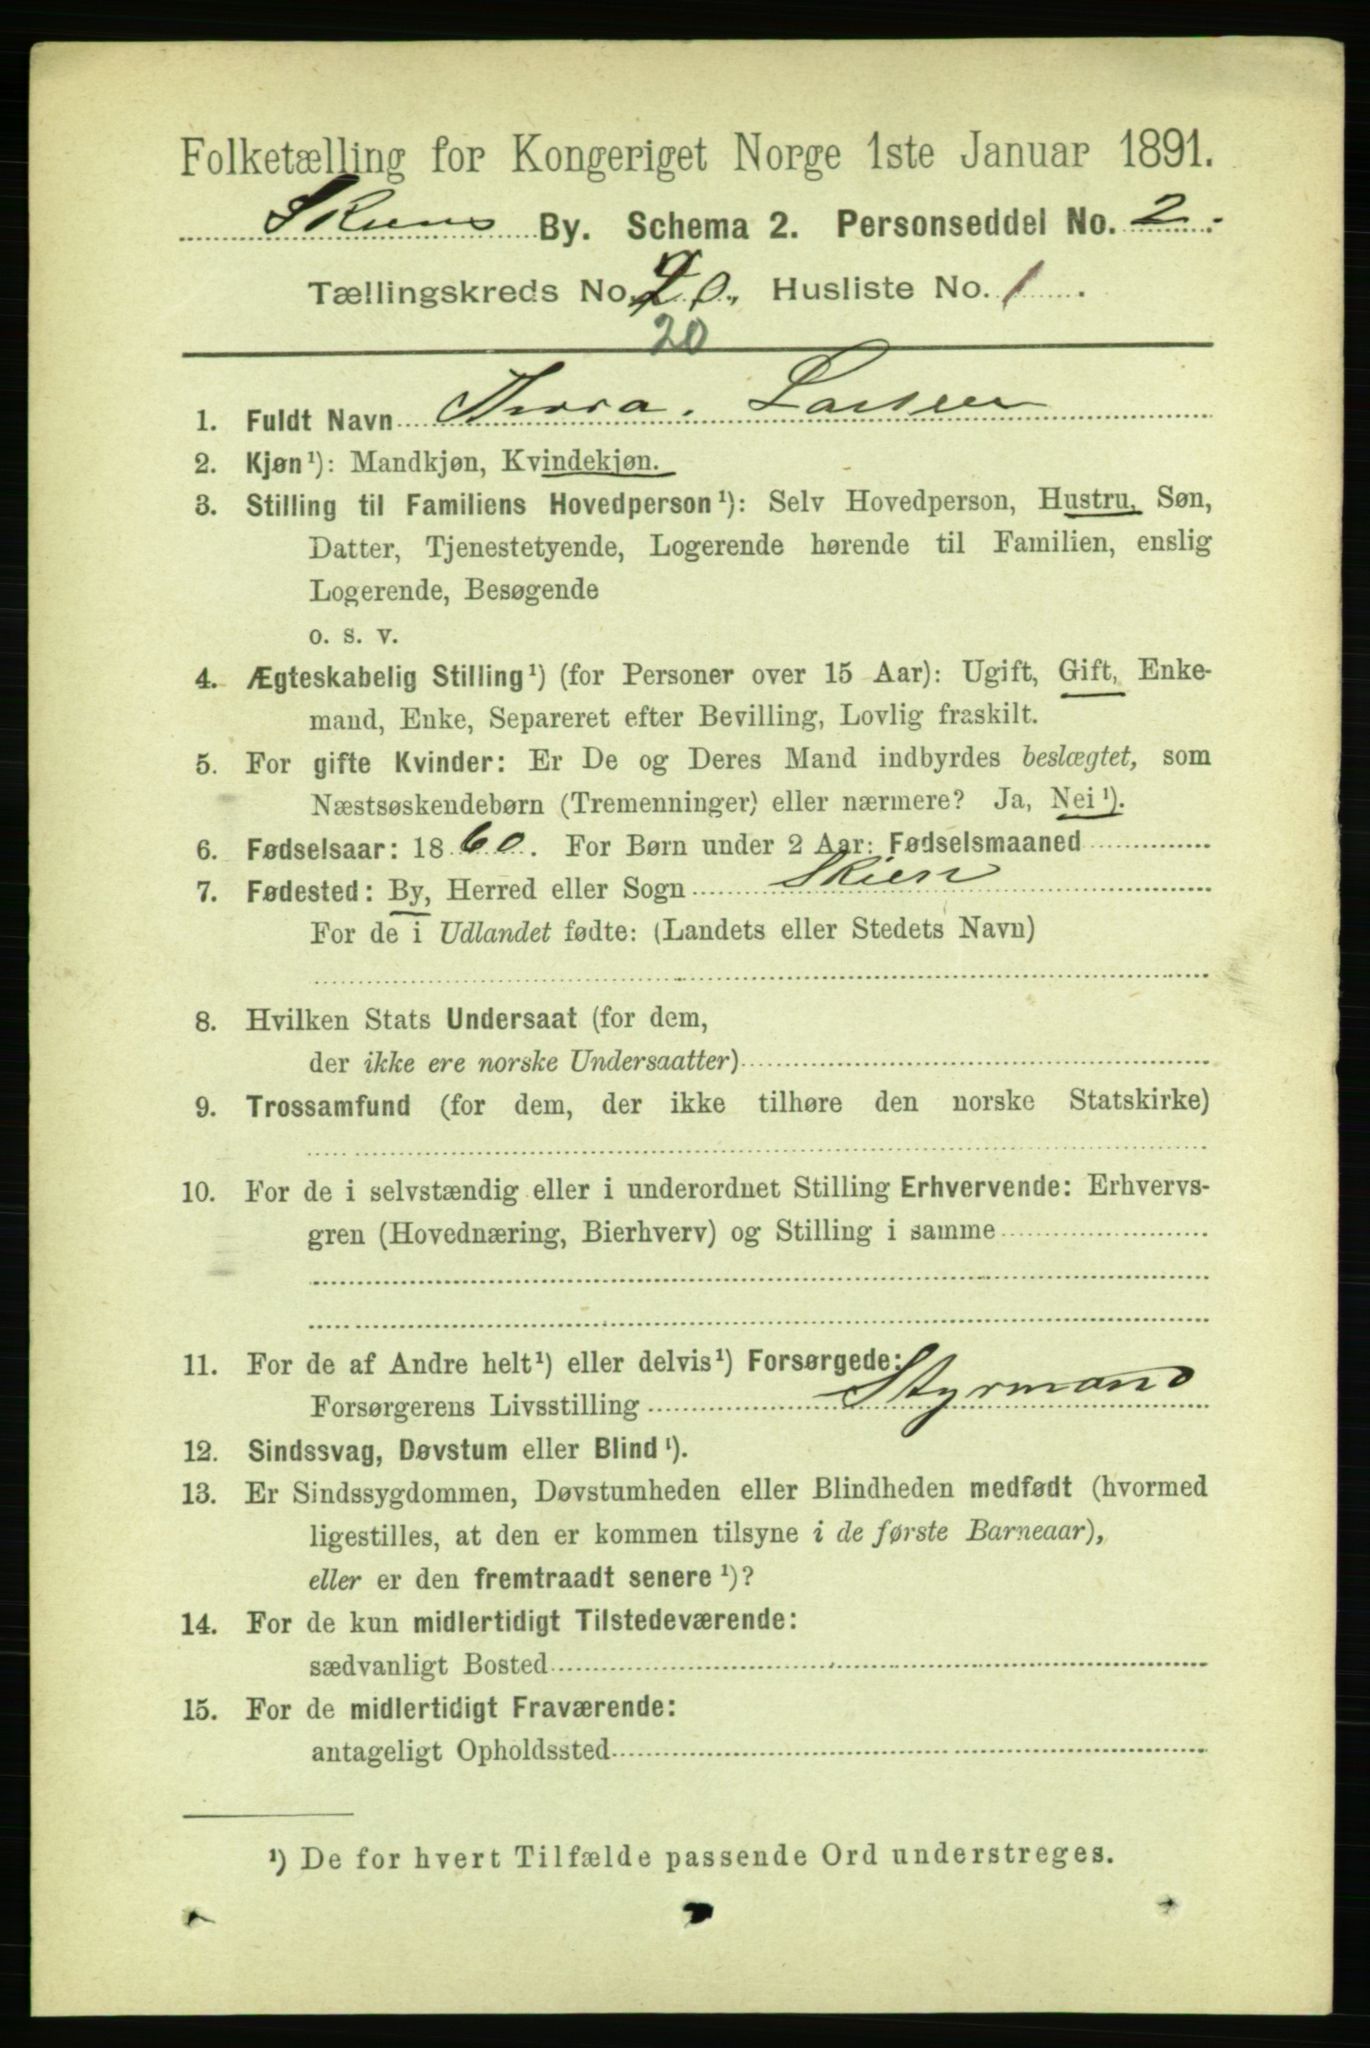 Folketælling for Kongeriget Norge 1ste Januar 1891.
Skiens By. Schema 2. Personseddel No. 2.
Tællingskreds No. 20. Husliste No. 1.
20
1. Fuldt Navn Thora. Larsen
2. Kjøn¹): Mandkjøn, Kvindekjøn.
3. Stilling til Familiens Hovedperson¹): Selv Hovedperson, Hustru, Søn,
Datter, Tjenestetyende, Logerende hørende til Familien, enslig
Logerende, Besøgende
o. s. v.
4. Ægteskabelig Stilling¹) (for Personer over 15 Aar): Ugift, Gift, Enke-
mand, Enke, Separeret efter Bevilling, Lovlig fraskilt.
5. For gifte Kvinder: Er De og Deres Mand indbyrdes beslægtet, som
Næstsøskendebørn (Tremenninger) eller nærmere? Ja, Nei¹).
6. Fødselsaar: 1860. For Børn under 2 Aar: Fødselsmaaned
7. Fødested: By, Herred eller Sogn Skien
For de i Udlandet fødte: (Landets eller Stedets Navn)
8. Hvilken Stats Undersaat (for dem,
der ikke ere norske Undersaatter)
9. Trossamfund (for dem, der ikke tilhøre den norske Statskirke)
10. For de i selvstændig eller i underordnet Stilling Erhvervende: Erhvervs-
gren (Hovednæring, Bierhverv) og Stilling i samme
11. For de af Andre helt¹) eller delvis¹) Forsørgede:
Forsørgerens Livsstilling Styrmand
12. Sindssvag, Døvstum eller Blind¹).
13. Er Sindssygdommen, Døvstumheden eller Blindheden medfødt (hvormed
ligestilles, at den er kommen tilsyne i de første Barneaar),
eller er den fremtraadt senere¹)?
14. For de kun midlertidigt Tilstedeværende:
sædvanligt Bosted
15. For de midlertidigt Fraværende:
antageligt Opholdssted
¹) De for hvert Tilfælde passende Ord understreges.